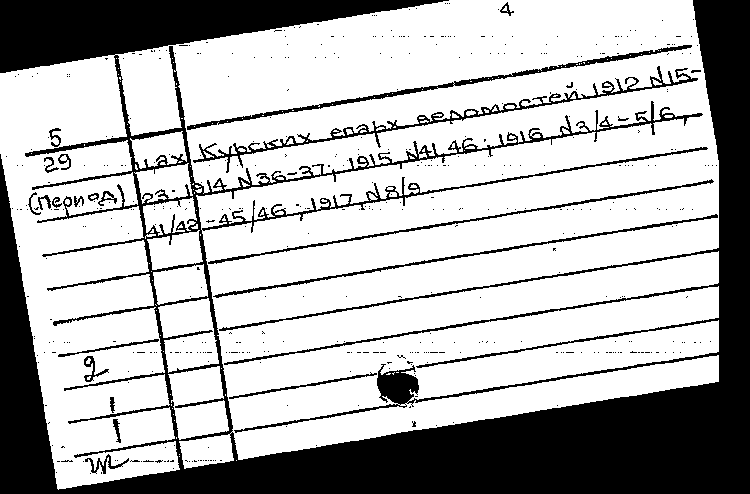 4
5
29
(Период)
цах Курских епарх ведомостей. 1912 N15-
23; 1914, N36-37; 1915, N41, 46; 1916, N3/4-5/6,
41/42-45/46; 1917, N8/9.
2
1
1
м